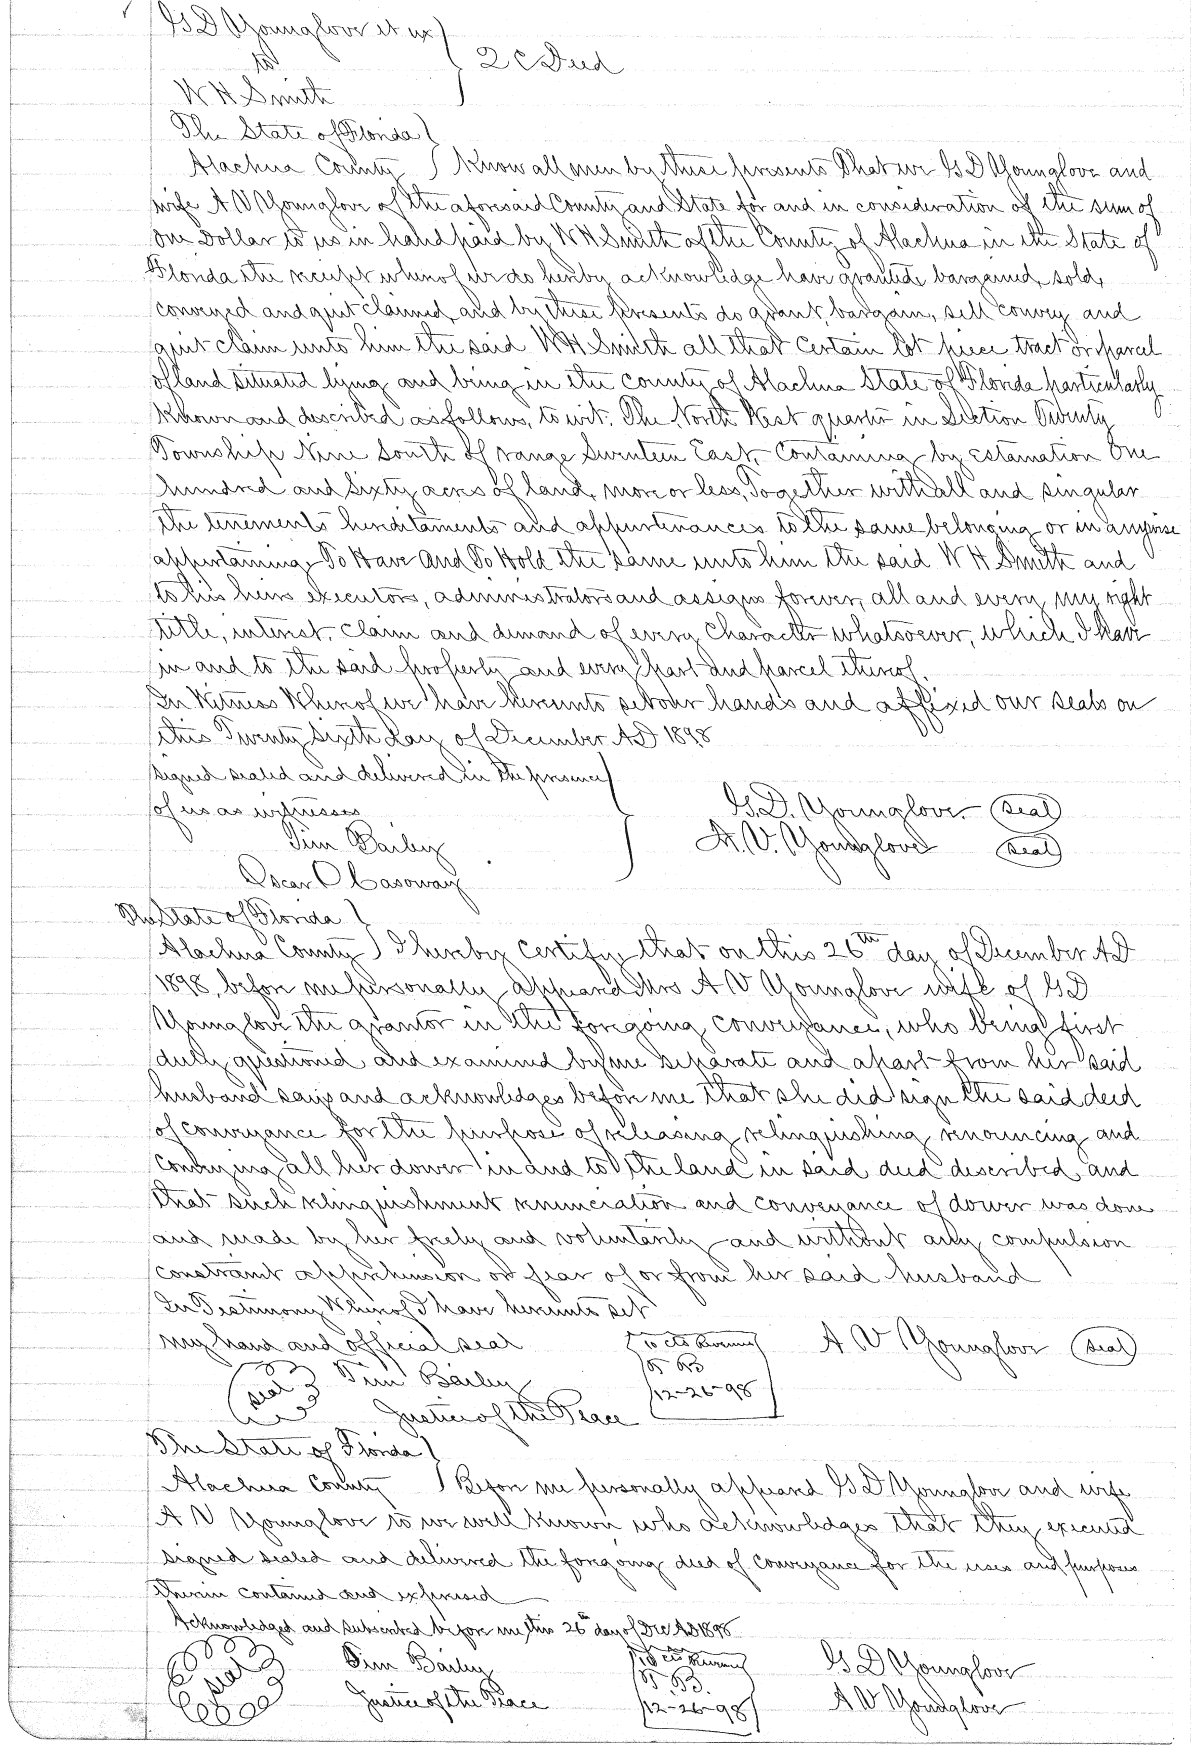 G D Younglove et ux
to
2 C Deed
W H Smith
The State of Florida
Alachua County Know all men by these presents That we G D Younglove and
wife A V Younglove of the aforesaid County and State for and in consideration of the sum of
One Dollar to us in hand paid by W H Smith of the County of Alachua in the State of
Florida the receipt whereof we do hereby acknowledge have granted, bargained, sold,
conveyed and quit claimed, and by these Presents do grant, bargain, sell convey and
quit claim unto him the said W H Smith all that certain lot piece tract or parcel
of land situated lying and being in the county of Alachua State of Florida particularly
known and described as follows, to wit: The North West quarter in Section Twenty
Township Nine South of range Seventeen East, Containing by estamation One
hundred and sixty acres of land, more or less, Together with all and singular
the tenements hereditaments and appurtenances to the same belonging or in anywise
appertaining, To Have and To Hold the same unto him the said W H Smith and
to his heirs executors, administrators and assigns forever, all and every my right
title, interest, claim and demand of every Character whatsoever, which I have
in and to the said property and every part and parcel thereof.
In Witness Whereof we have hereunto set our hands and affixed our seals on
this Twenty Sixth day of December AD 1898
signed sealed and delivered in the presence
of us as witnesses
G. D. Younglove seal
Tim Bailey
A. V. Younglove seal
Oscar O
The State of Florida
Alachua County I hereby certify that on this 26th day of December AD
1898, before me personally appeard Mrs A V Younglove wife of G D
Younglove the grantor in the foregoing conveyance, who being first
duly questioned and examined by me separate and apart from her said
husband says and acknowledges before me that she did sign the said deed
of conveyance for the purpose of releasing relinquishing renouncing and
conveying all her dower in and to the land in said deed described and
that such relinquishment renunciation and conveyance of dower was done
and made by her freely and voluntarily and without any compulsion
constraint apprehension or fear of or from her said husband
In Testimony Whereof I have hereunto set
my hand and official seal
10 cts Revenue
A V Younglove seal
seal Tim Bailey
T B
12-26-98
Justice of the Peace
The State of Florida
Alachua County Before me personally appeard G D Younglove and wife
A V Younglove to we well known who acknowledges that they executed
signed sealed and delivered the foregoing deed of conveyance for the uses and purposes
therein contained and expressed
Acknowledged and subscribed before me this 26th day of Dec AD 1898
seal Tim Bailey
10 cts Revenue
G D Younglove
Justice of the Peace
T. B.
12-26-98
A V Younglove